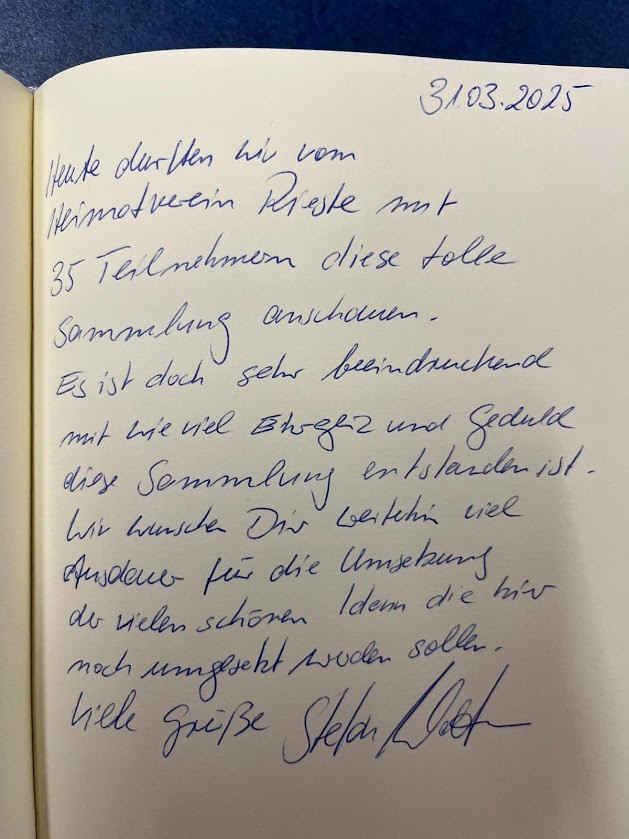 31.03.2025
Heute durften wir vom
Heimatverein Rieste mit
35 Teilnehmern diese tolle
Sammlung anschauen.
Es ist doch sehr beeindruckend
mit wie viel Ehrgeiz und Geduld
diese Sammlung entstanden ist.
Wir wünschen Dir weiterhin viel
Ausdauer für die Umsetzung
der vielen schönen Ideen die hier
noch umgesetzt werden sollen.
Viele Grüße Stefan